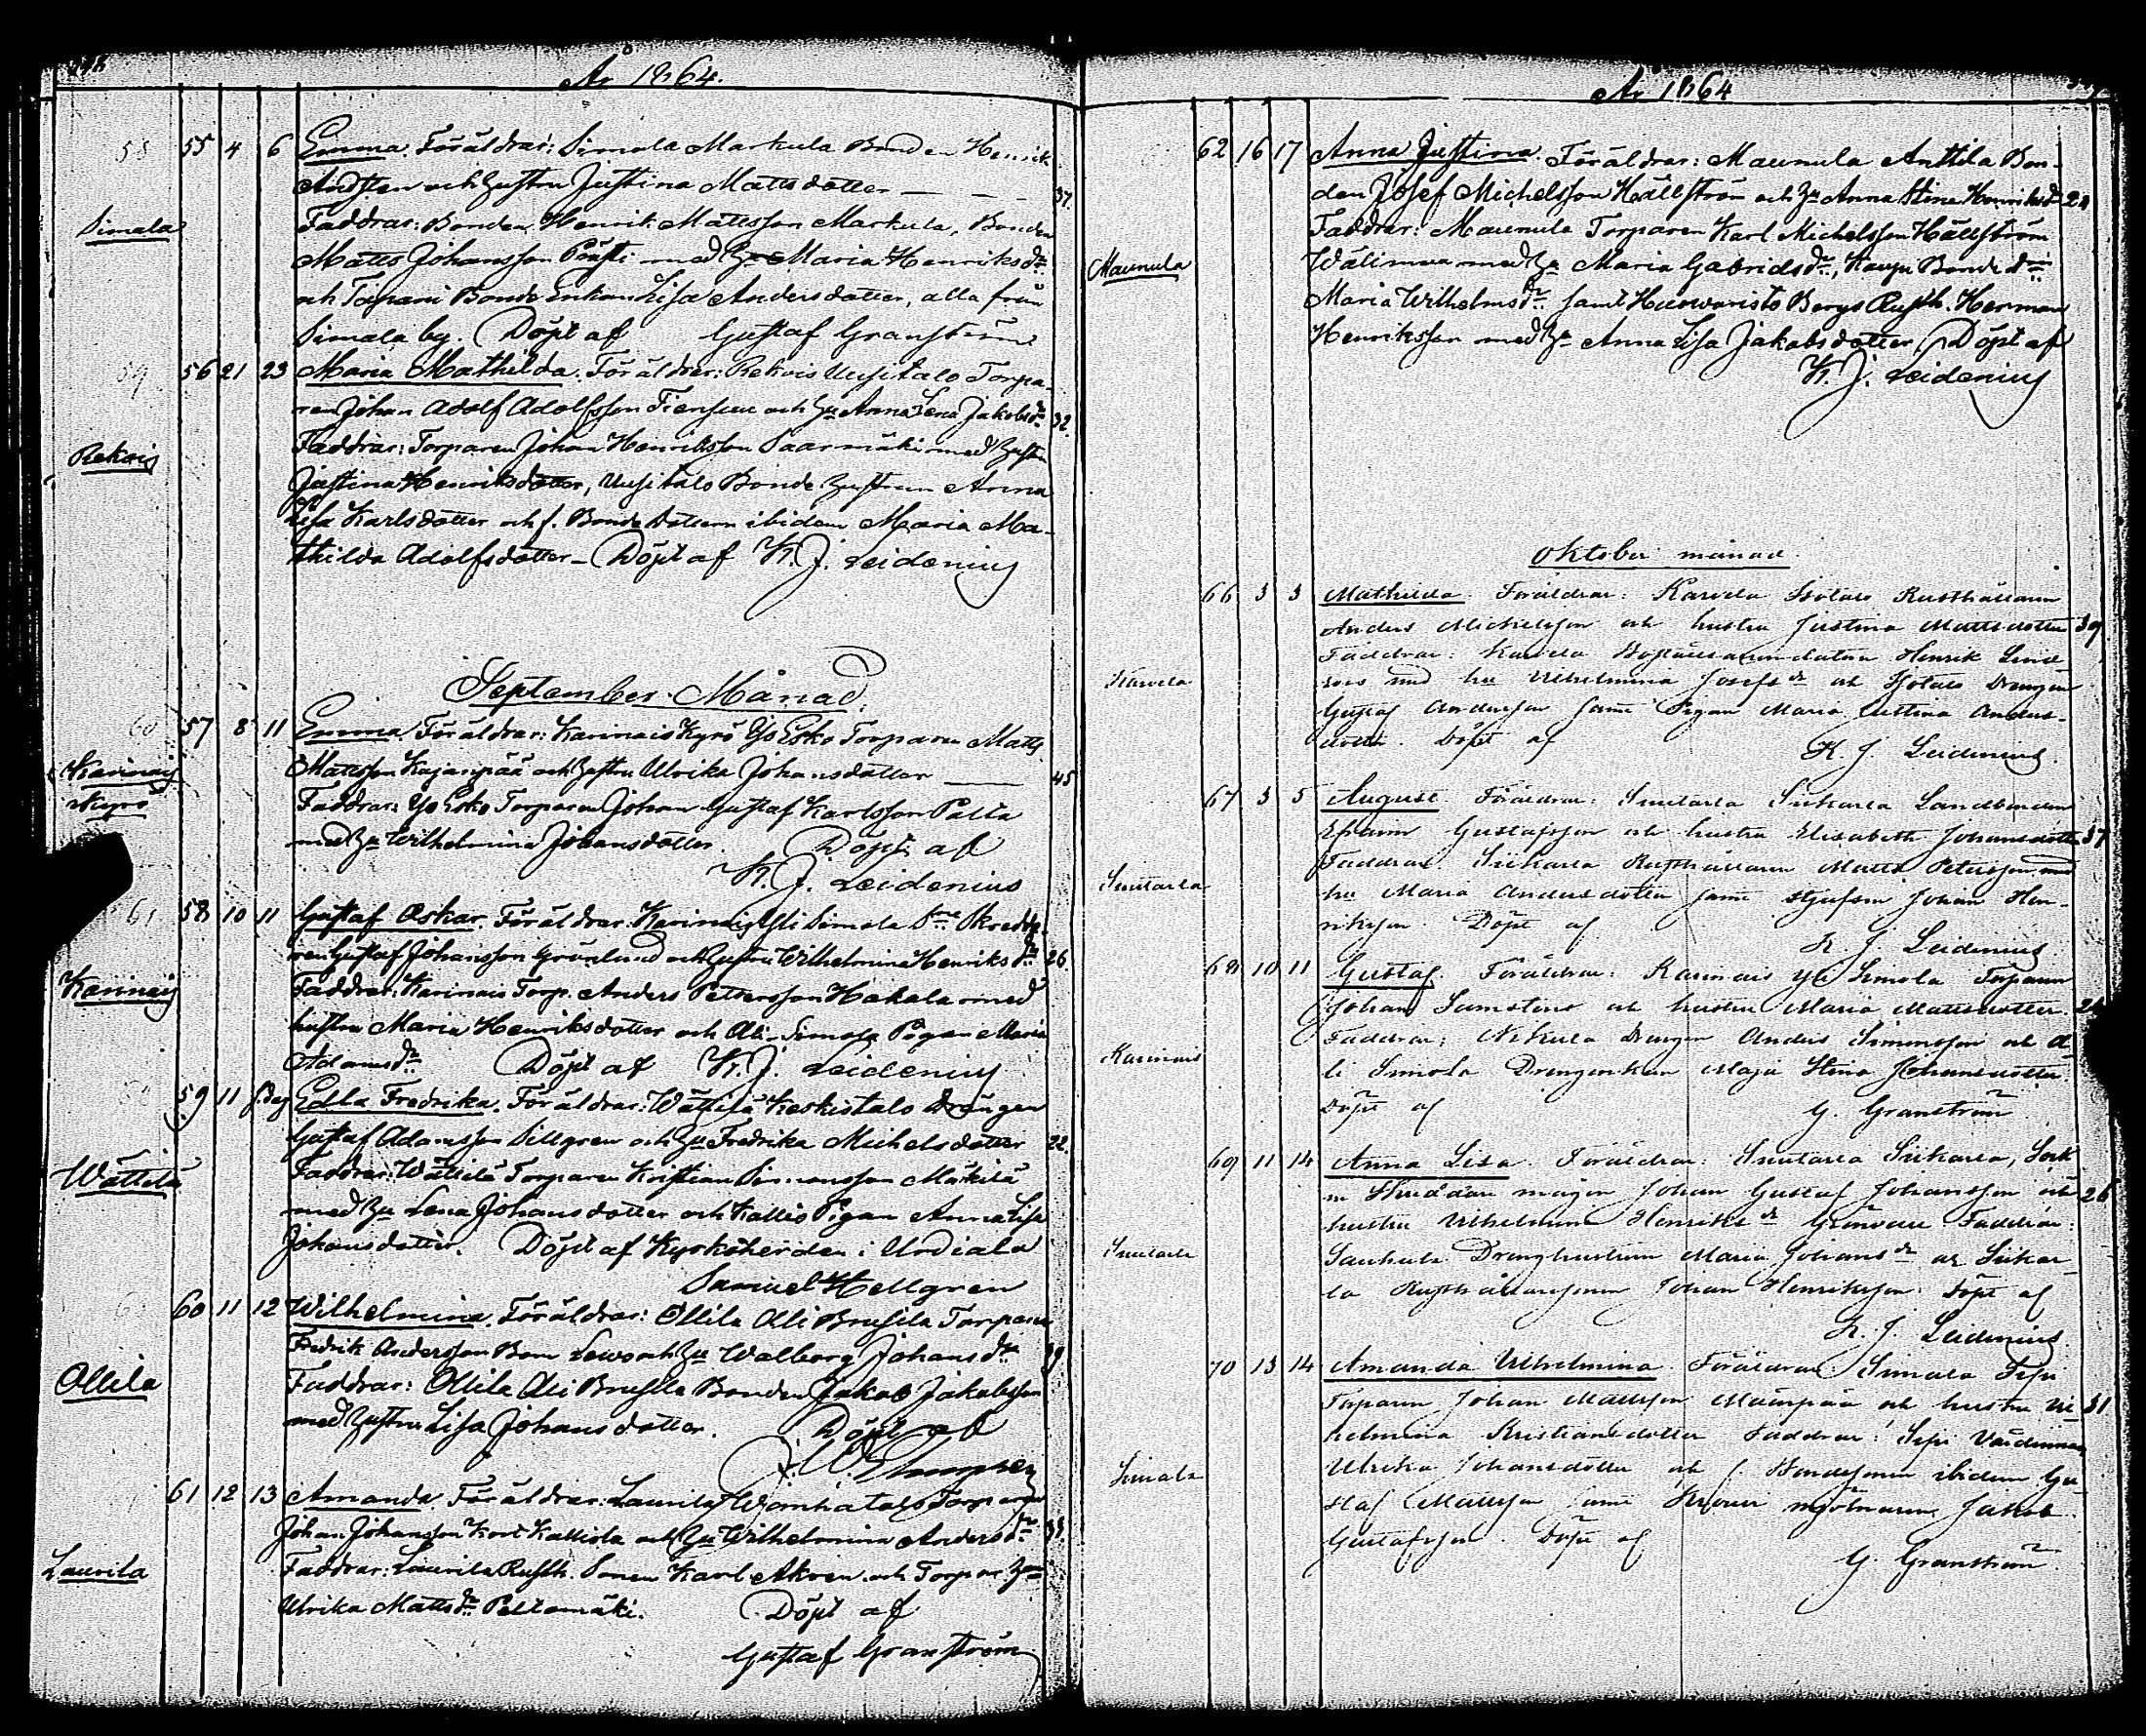 År 1864.
Simala
55 4 6 Emma. Föräldrar: Simala Markula Bonden Henrik
Andsson och hustru Justina Mattsdotter 37.
Faddrar: Bonden Henrik Mattsson Markula, Bonden
Matts Johansson med Hu Maria Henriksdr
och Tapani Bonde Enkan Lisa Andersdotter, alla från
Simala by. Döpt af Gustaf Granström
Rekois
56 21 23 Maria Mathilda. Föräldrar: Rekois Uusitalo Torpa-
ren Johan Adolf Adolfsson och Hu Anna Lena Jakobsdr 32.
Faddrar: Torparen Johan Henriksson Saarmäki med hustru
Justina Henriksdotter, Uusitalo Bonde hustrun Anna
Lisa Karlsdotter och f. Bonde dottern ibidem Maria Ma-
thilda Adolfsdotter – Döpt af K. J. Leidenius
September Månad.
Karinais
Kyrö
57 8 11 Emma. Föräldrar: Karinais Kyrö Yso Esko Torparen Matts
Mattsson Kajanpää och hustru Ulrika Johansdotter 45
Faddrar: Yso Esko Torparen Johan Gustaf Karlsson Palta
med Hu Wilhelmina Johansdotter. Döpt af
K. J. Leidenius
Karinais
58 10 11 Gustaf Oskar. Föräldrar: Karinais Yli Simola
ren Gustaf Johansson Grönlund och hustru Wilhelmina Henriksdr 26.
Faddrar: Karinais Torp. Anders Pettersson Hakala med
hustru Maria Henriksdotter och Ali-Simola Pigan Maria
Adamsdr Döpt af K. J. Leidenius
Wättilä
59 11 s. dag Edla Fredrika. Föräldrar: Wättilä Keskitalo Drängen
Gustaf Adamsson Sillgren och Hu Fredrika Michelsdotter 22.
Faddrar: Wättilä Torparen Kristian Simonsson Mäkilä
med Hu Lena Johansdotter och Kallio Pigan Anna Lisa
Johansdotter. Döpt af Kyrkoherden i Urdiala
Samuel Hellgren
Ollila
60 11 12 Wilhelmina. Föräldrar: Ollila Ali Brusila Torparen
Fredrik Andersson och Hu Walborg Johansdr
Faddrar: Ollila Ali Brusila Bonden Jakob Jakobsson
med hustru Lisa Johansdotter. Döpt af
Laurila
61 12 13 Amanda. Föräldrar: Laurila Torparen
Johan Johansson Kalliola och Hu Wilhelmina Andersdr
Faddrar: Laurila Rusth. Sonen Karl och Torpar Hu
Ulrika Mattsdr Peltomäki. Döpt af
Gustaf Granström
År 1864
Maunula
62 16 17 Anna Justina. Föräldrar: Maunula Anttila Bon-
den Josef Michelsson Hällström och Hu Anna Stina Henriksdr
Faddrar: Maunula Torparen Karl Michelsson Hällström
Wälimaa med Hu Maria Gabrielsdr, Bonde dr
Maria Wilhelmsdr samt Haswaristo Bergs Rusth. Herman
Henriksson med Hu Anna Lisa Jakobsdotter. Döpt af
K. J. Leidenius
Oktober månad.
Karvela
66 3 3 Mathilda. Föräldrar: Karvela Isotalo Rusthållaren
Anders Michelsson och hustru Justina Mattsdotter 39
Faddrar: Karvela Henrik Lind
roos med hu Wilhelmina Josefsdr och Isotalo Drängen
Gustaf Andersson samt Pigan Maria Justina Anders-
dotter. Döpt af K. J. Leidenius.
67 3 5 August. Föräldrar: Siikarla Landbonden
Efraim Gustafsson och hustru Elisabeth Johansdotter 37
Faddrar: Siikarla Rusthållaren Matts Petersson med
hu Maria Andersdotter samt styfson Johan Hen-
riksson. Döpt af K. J. Leidenius.
Karinais
68 10 11 Gustaf. Föräldrar: Karinais Yli Simola Torparen
Johan Samsten och hustru Maria Mattsdotter.
Faddrar: Drängen Anders Simonsson och A-
li Simola Drängenkan Maja Stina Johansdotter.
Döpt af G. Granström
69 11 14 Anna Lisa. Föräldrar: Siikarla, Sock
ne Skräddaren Johan Gustaf Johansson och 26
hustru Wilhelmina Henriksdr Grönvall Faddrar:
Drenghustrun Maria Johansdr och Siikar-
la Rusthållaresonen Johan Henriksson. Döpt af
K. J. Leidenius
Simala
70 13 14 Amanda Wilhelmina. Föräldrar: Simala Sepi
Torparen Johan Mattsson och hustru Wi- 31
helmina Kristiansdotter Faddrar: Sepi Värdinnan
Ulrika Johansdotter och f. Bondesonen ibidem Gu-
staf Mattsson samt mjölnaren Jakob
Gustafsson. Döpt af
G. Granström.